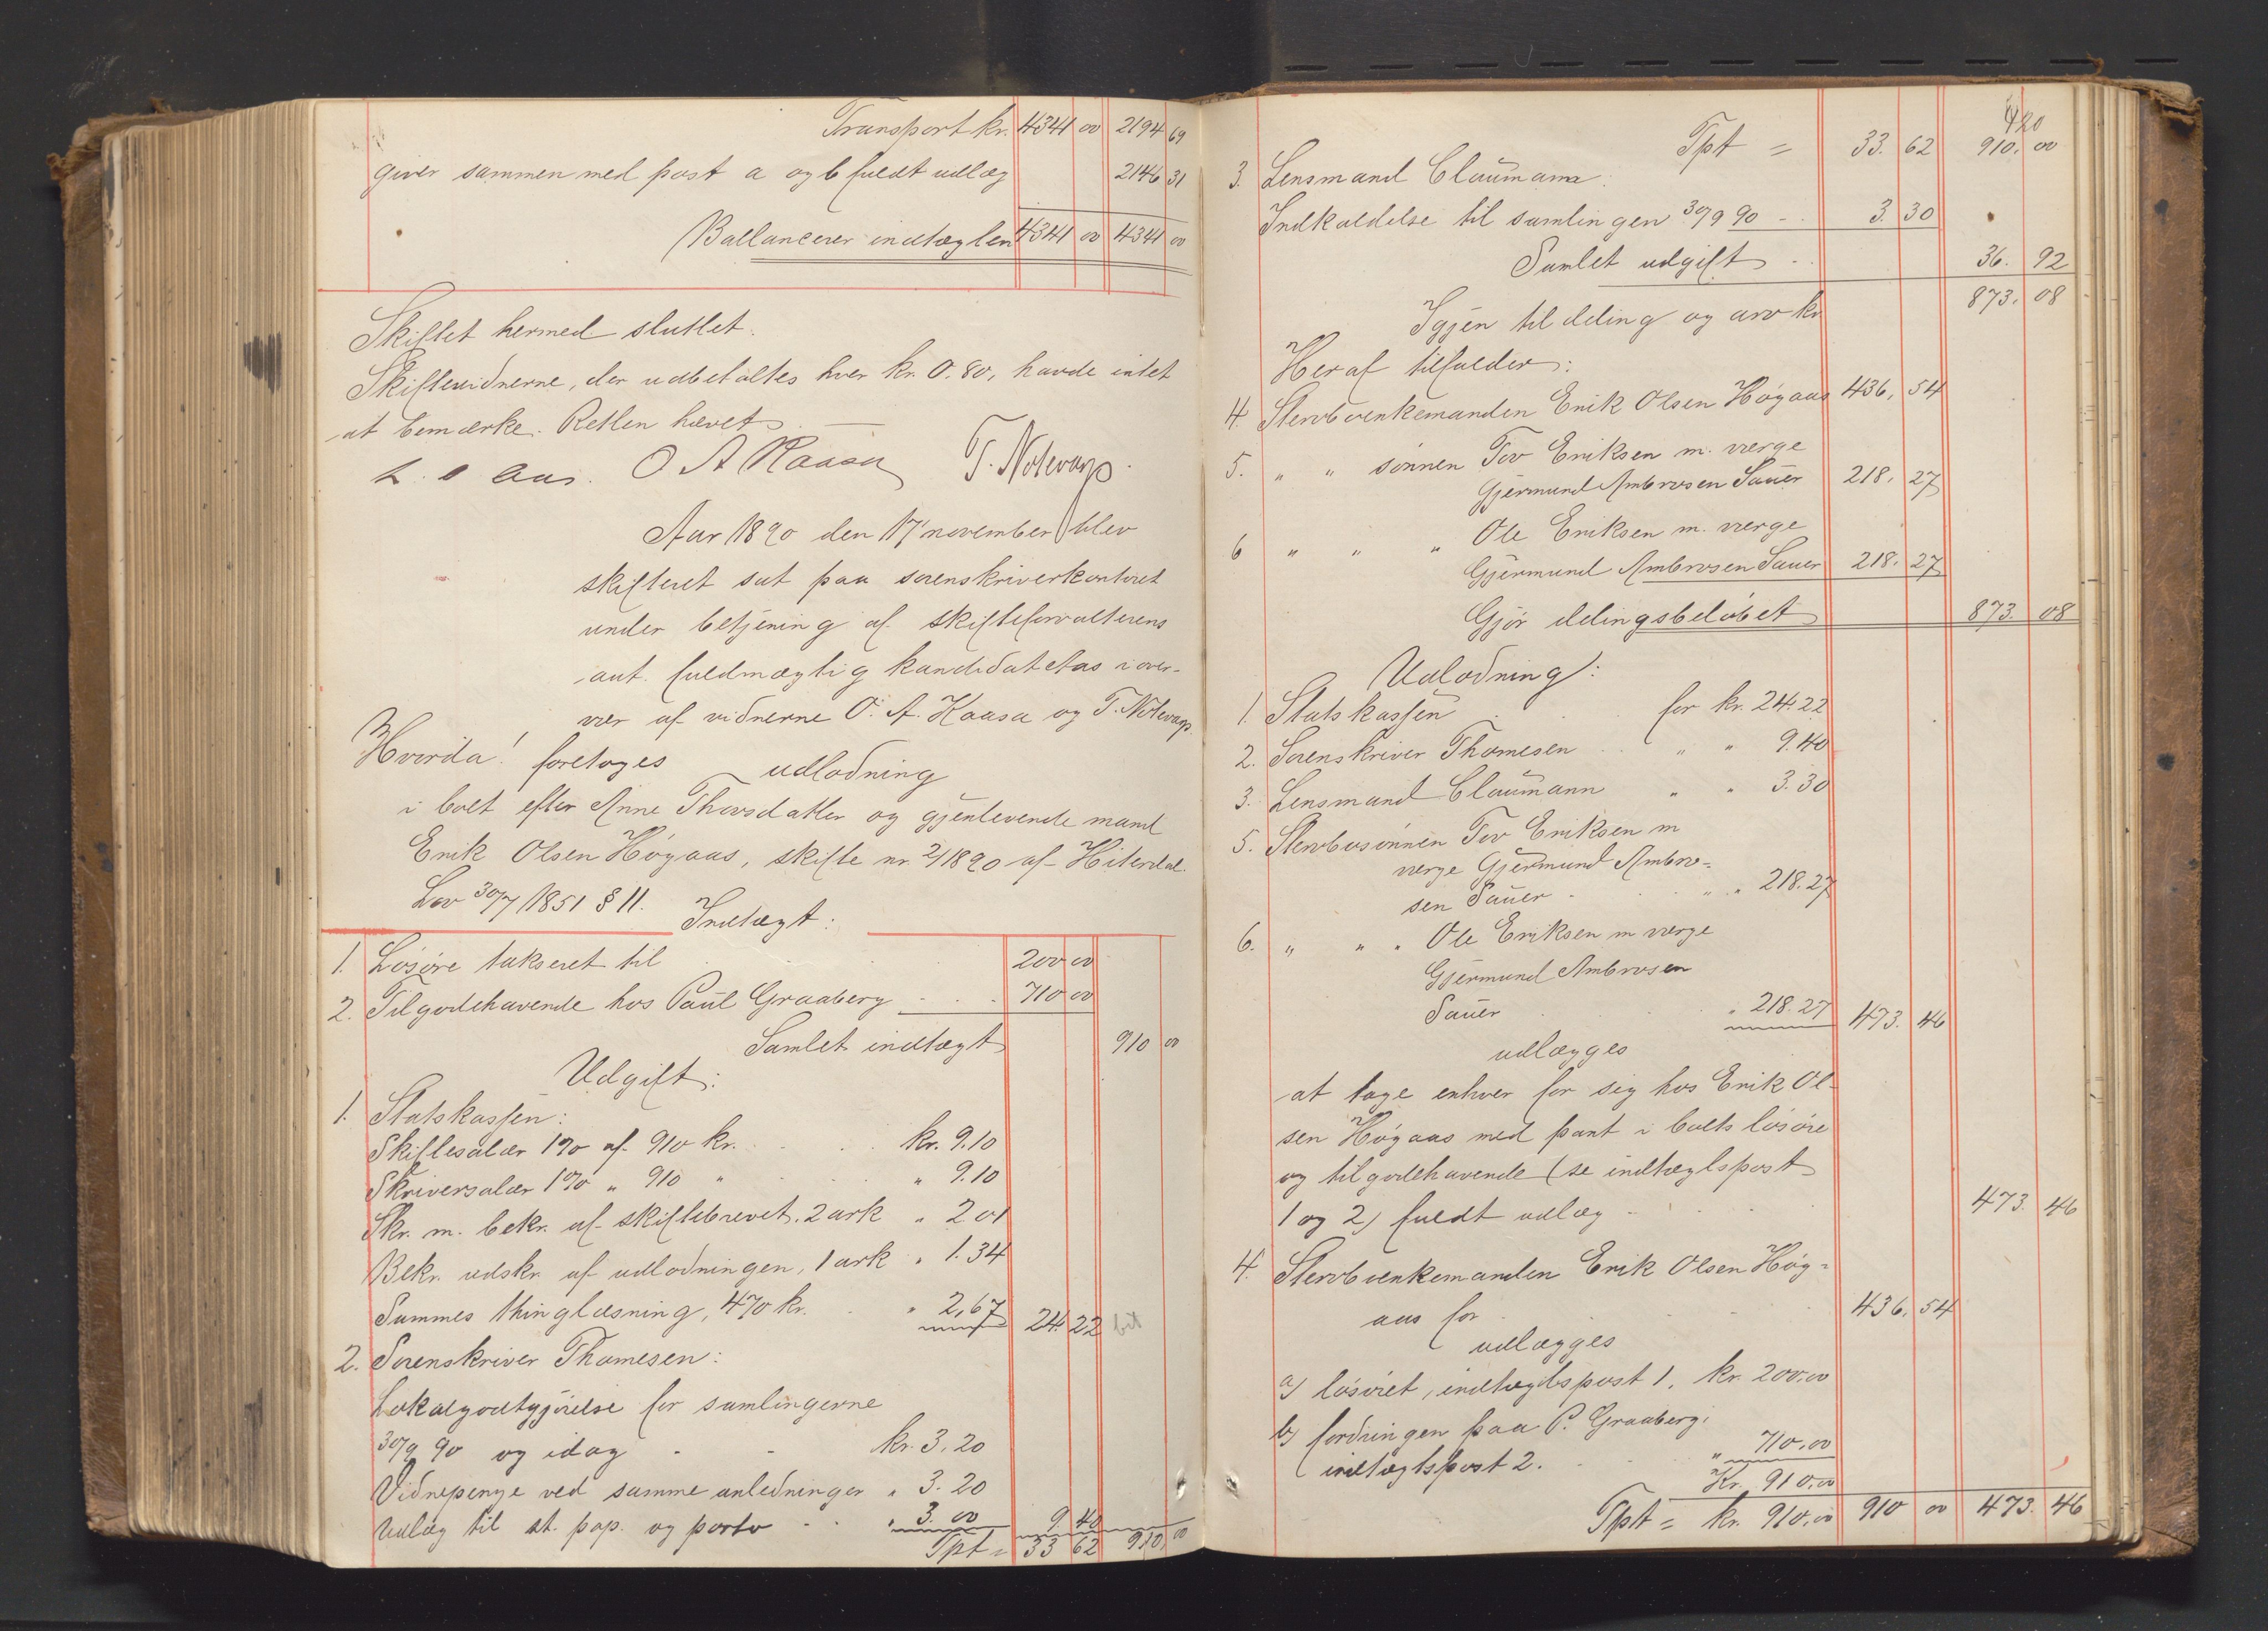 Transport kr. 4341 00 2194 69
giver sammen med post a og b fuldt udlæg 2146 31
Ballancerer indtægten 4341 00 4341 00
Skiftet hermed sluttet.
Skiftevidnerne, der udbetaltes hver kr. 0.80, havde intet
at bemærke. Retten hævet.
L. O. Aas. O A Kaasa T. Notevarp.
Aar 1890 den 17' november blev
skifteret sat paa sorenskriverkontoret
under betjening af skifteforvalterens
aut. fuldmægtig kandidat Aas i over-
vær af vidnerne O. A. Kaasa og T. Notevarp.
Hvorda! foretoges udlodning
i boet efter Anne Thorsdatter og gjenlevende mand
Erik Olsen Høgaas, skifte nr. 2/1890 af Hiterdal.
Lov 30/7 1851 § 11. Indtægt:
1. Løsøre takseret til 200 00
2. Tilgodehavende hos Paul Graaberg 710 00
Samlet indtægt 910 00
Udgift:
1. Statskassen:
Skiftesalær 1% af 910 kr. kr. 9.10
Skriversalær 1% " 910 " " 9.10
Skr. m. bekr. af skiftebrevet. 2 ark " 2 01
Bekr. udskr. af udlodningen, 1 ark " 1.34
Sammes thinglæsning, 470 kr. " 2,67 24. 22
2. Sorenskriver Thomesen:
Lokalgodtgjørelse for samlingerne
30/9 90 og idag kr. 3.20
Vidnepenge ved samme anledninger " 3.20
Udlæg til st. pap. og porto " 3.00 9. 40
Tpt = 33 62 910, 00
420
Tpt = 33. 62 910. 00
3. Lensmand Claumann:
Indkaldelse til samlingen 30/9 90 3. 30
Samlet udgift 36. 92
Igjen til deling og arv kr 873. 08
Heraf tilfalder:
4. Stervboenkemanden Erik Olsen Høgaas 436, 54
5. " " sønnen Tov Eriksen m. værge
Gjermund Ambrosen Sauer 218. 27
6 " " " Ole Eriksen m. værge
Gjermund Ambrosen Sauer 218. 27
Gjør delingsbeløbet 873. 08
Udlodning:
1. Statskassen for kr. 24.22
2. Sorenskriver Thomesen " " 9.40
3. Lensmand Claumann " " 3.30
5. Stervbosønnen Tov Eriksen m
værge Gjermund Ambro-
sen Sauer " " 218.27
6. " " " Ole Eriksen m værge
Gjermund Ambrosen
Sauer " 218.27 473. 46
udlægges
at tage enhver for sig hos Erik Ol-
sen Høgaas med pant i boets løsøre
og tilgodehavende (se indtægtspost
1 og 2) fuldt udlæg 473. 46
4. Stervboenkemanden Erik Olsen Høg-
aas for 436. 54
udlægges
a) løsøret, indtægtspost 1. kr. 200.00
b) fordringen paa P. Graaberg,
indtægtspost 2. " 710.00
Kr. 910.00
Tpt = kr. 910.00 910 00 473. 46